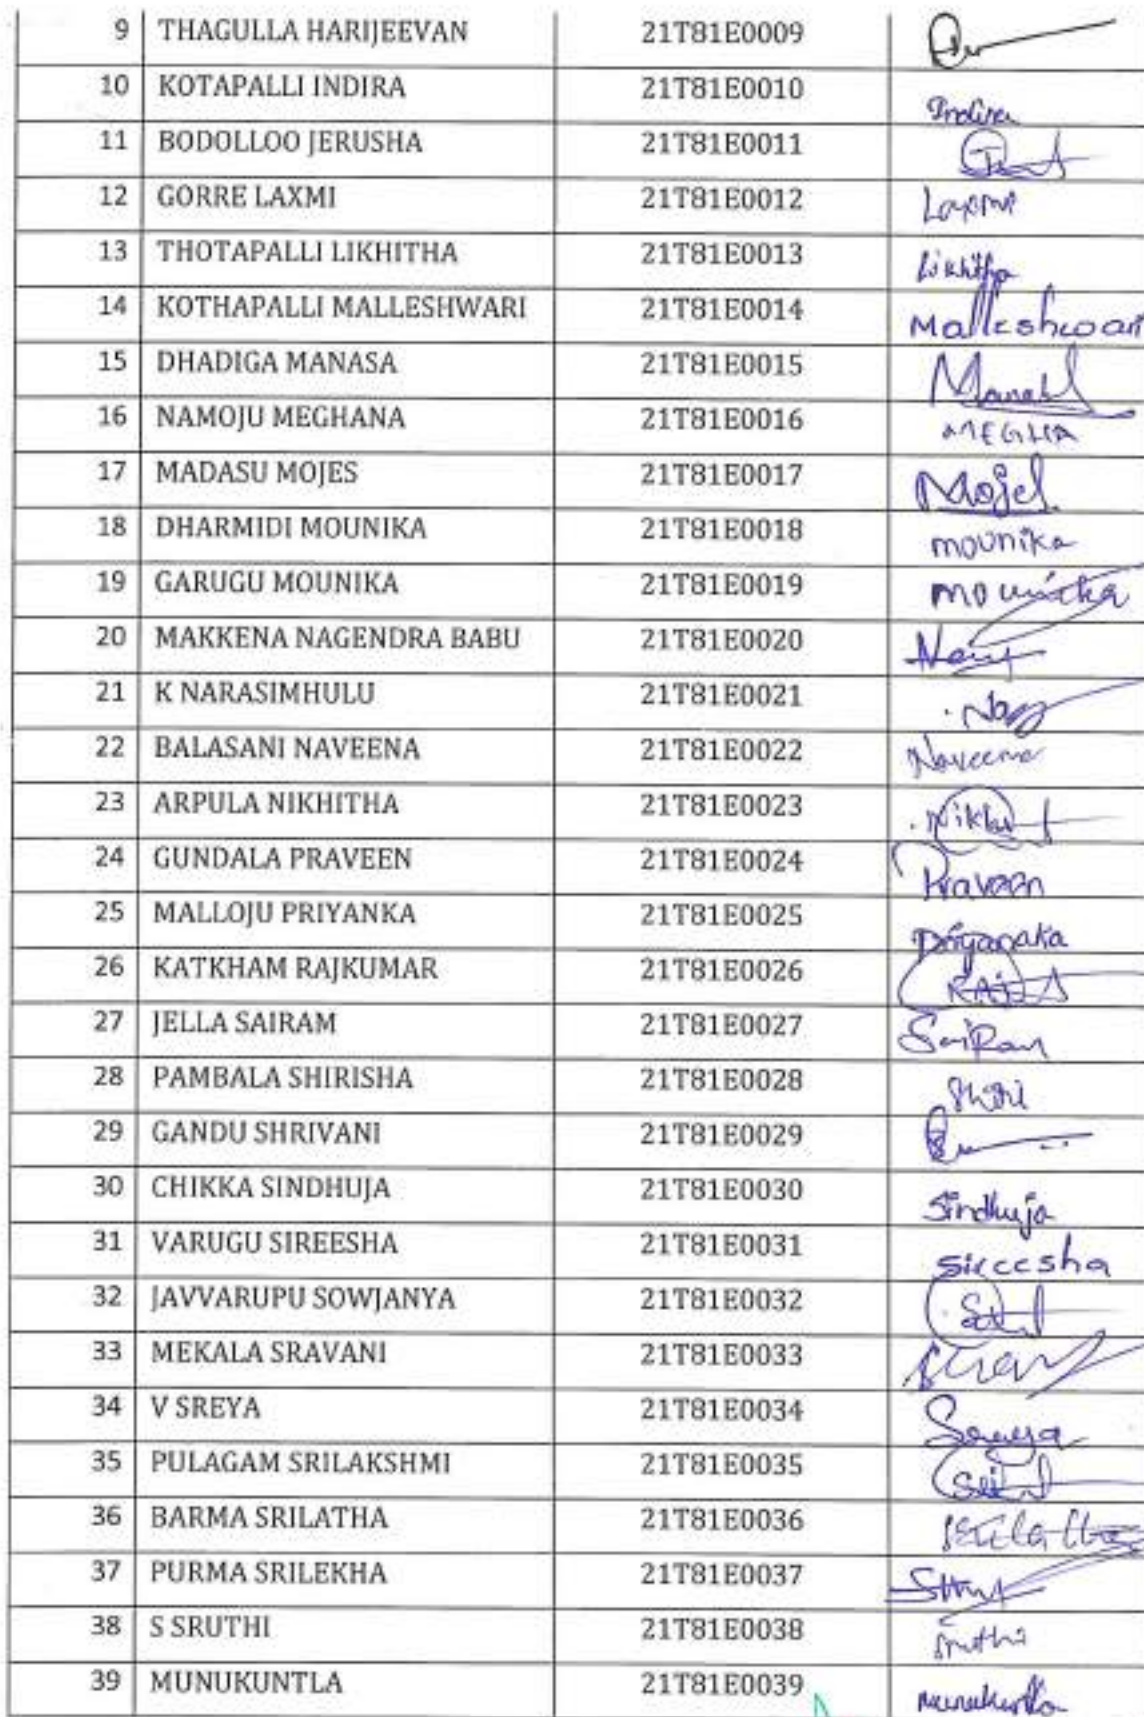 9 THAGULLA HARIJEEVAN 21T81E0009
10 KOTAPALLI INDIRA 21T81E0010 Indira
11 BODOLLOO JERUSHA 21T81E0011
12 GORRE LAXMI 21T81E0012 Laxmi
13 THOTAPALLI LIKHITHA 21T81E0013 Likhitha
14 KOTHAPALLI MALLESHWARI 21T81E0014 Malleshwari
15 DHADIGA MANASA 21T81E0015
16 NAMOJU MEGHANA 21T81E0016 MEGHA
17 MADASU MOJES 21T81E0017 Mojes
18 DHARMIDI MOUNIKA 21T81E0018 mounika
19 GARUGU MOUNIKA 21T81E0019 mounika
20 MAKKENA NAGENDRA BABU 21T81E0020
21 K NARASIMHULU 21T81E0021
22 BALASANI NAVEENA 21T81E0022 Naveena
23 ARPULA NIKHITHA 21T81E0023
24 GUNDALA PRAVEEN 21T81E0024 Praveen
25 MALLOJU PRIYANKA 21T81E0025 Priyanaka
26 KATKHAM RAJKUMAR 21T81E0026
27 JELLA SAIRAM 21T81E0027 SaiRam
28 PAMBALA SHIRISHA 21T81E0028
29 GANDU SHRIVANI 21T81E0029
30 CHIKKA SINDHUJA 21T81E0030 Sindhuja
31 VARUGU SIREESHA 21T81E0031 Sireesha
32 JAVVARUPU SOWJANYA 21T81E0032
33 MEKALA SRAVANI 21T81E0033
34 V SREYA 21T81E0034
35 PULAGAM SRILAKSHMI 21T81E0035
36 BARMA SRILATHA 21T81E0036 Srilatha
37 PURMA SRILEKHA 21T81E0037
38 S SRUTHI 21T81E0038 Sruthi
39 MUNUKUNTLA 21T81E0039 Munukuntla